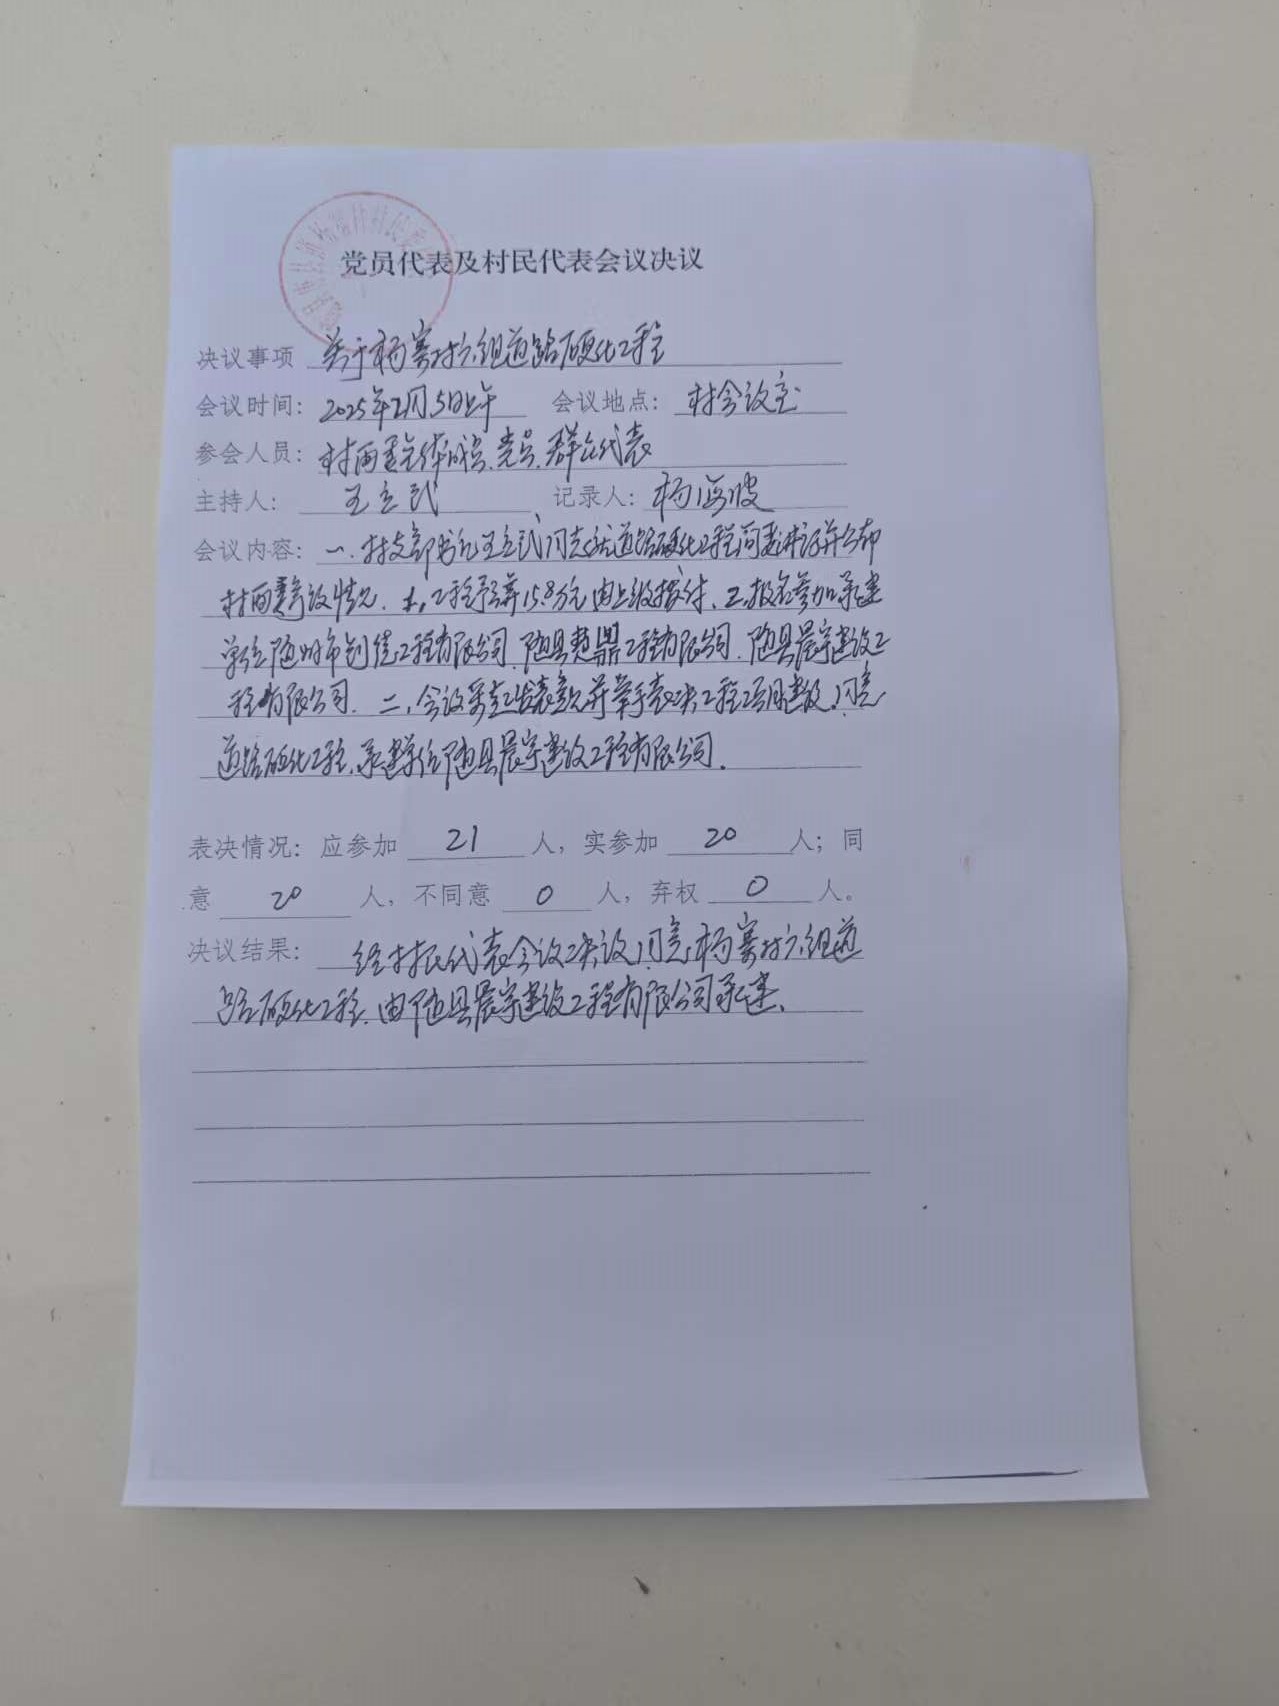 党员代表及村民代表会议决议
决议事项 关于杨寨村六组道路硬化工程
会议时间：2025年2月5日上午 会议地点：村会议室
参会人员：村两委全体成员、党员、群众代表
主持人：王立武 记录人：杨海波
会议内容：一、村支部书记王立武同志就道路硬化工程简要讲评并公布
村两委商议情况. 1、工程预算15.8万元,由上级拨付、2、报名参加承建
单位随州市创佳工程有限公司、随县楚鼎工程有限公司、随县晨宇建设工
程有限公司. 二、会议发言发表意见并举手表决工程项目建设,同意
道路硬化工程,承建单位随县晨宇建设工程有限公司.
表决情况：应参加 21 人，实参加 20 人；同
意 20 人，不同意 0 人，弃权 0 人。
决议结果：经村民代表会议决议,同意杨寨村六组道
路硬化工程,由随县晨宇建设工程有限公司承建.